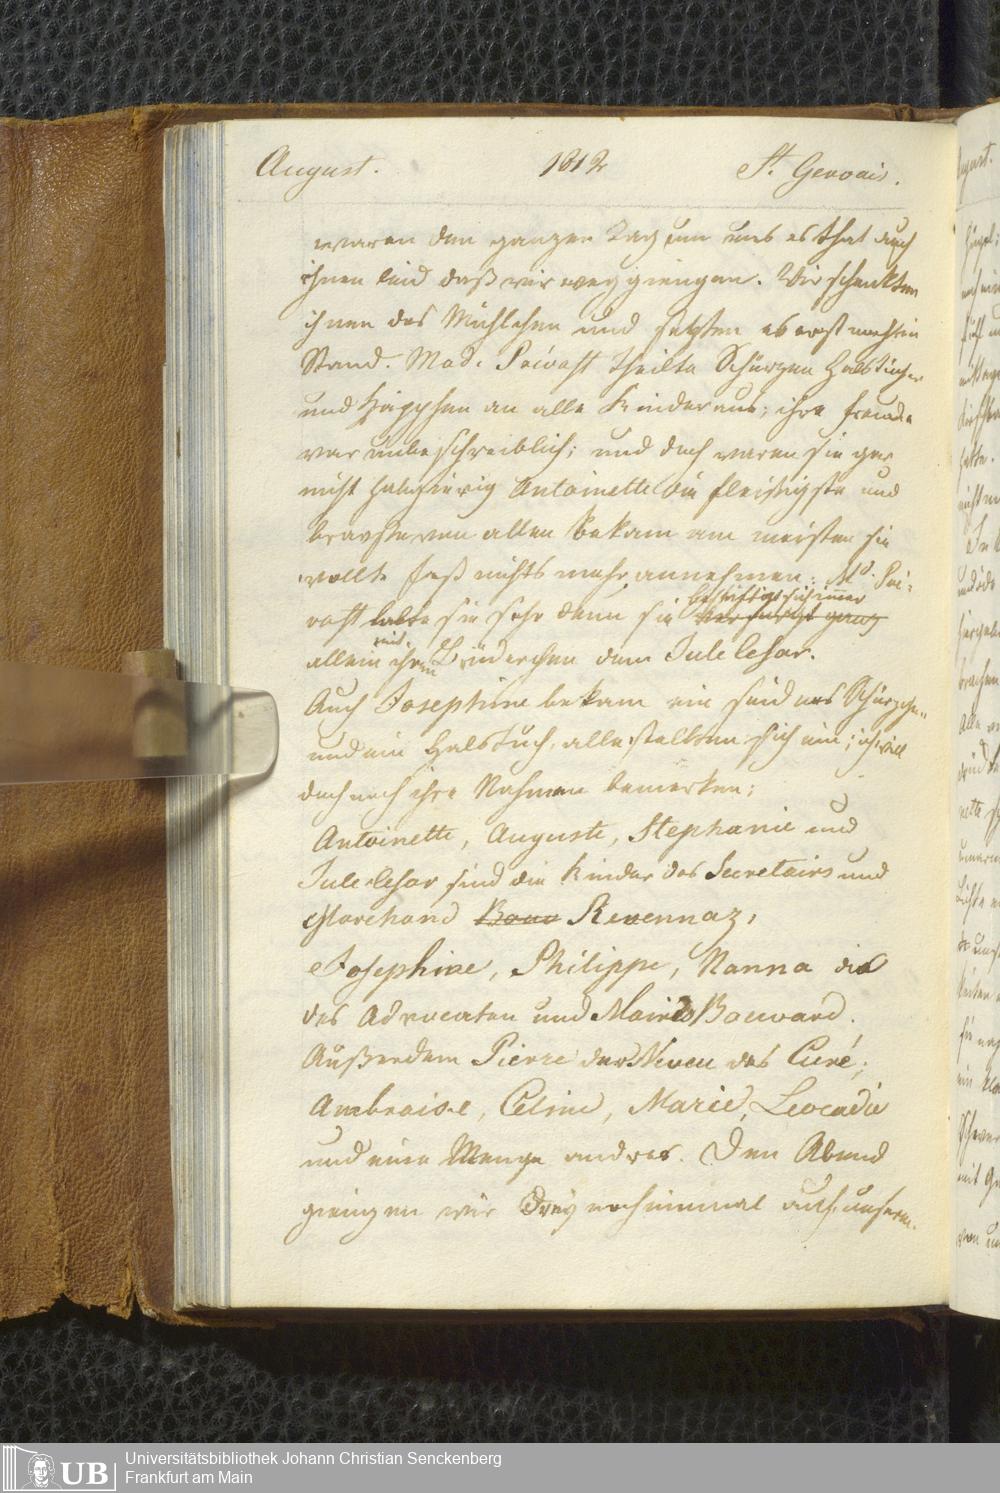 August. 1812 St. Gervais.
waren den ganzen Tag um uns es that auch
ihnen leid daß wir weggiengen. Wir schenkten
ihnen das Mühlchen und setzten es erst noch in
Stand. Mad. theilte Schürzen Halstücher
und Häppchen an alle Kinder aus; ihre Freude
war unbeschreiblich; und doch waren sie gar
nicht habgierig Antoinette die fleißigste und
bravste von allen bekam am meisten sie
wollte fast nichts mehr annehmen. Md.
lobte sie sehr denn sie beschäftigt sich immer
allein mit ihrem Brüderchen dem Jule Cesar.
Auch Josephine bekam ein seidnes Schürzchen
und ein Halstuch, alle stellten sich ein; ich will
doch noch ihre Nahmen bemerken;
Antoinette, Auguste, Stephanie und
Jule Cesar sind die Kinder des Secretairs und
Marchand Revennaz,
Josephine, Philippe, Nanna die
des Advocaten und Maires Bouvard.
Außerdem Pierre der Neveu des Curé,
Ambroise, Celine, Marie, Leocadie
und eine Menge andres. Den Abend
giengen wir drey noch einmal auf unserm
Universitätsbibliothek Johann Christian Senckenberg
UB Frankfurt am Main